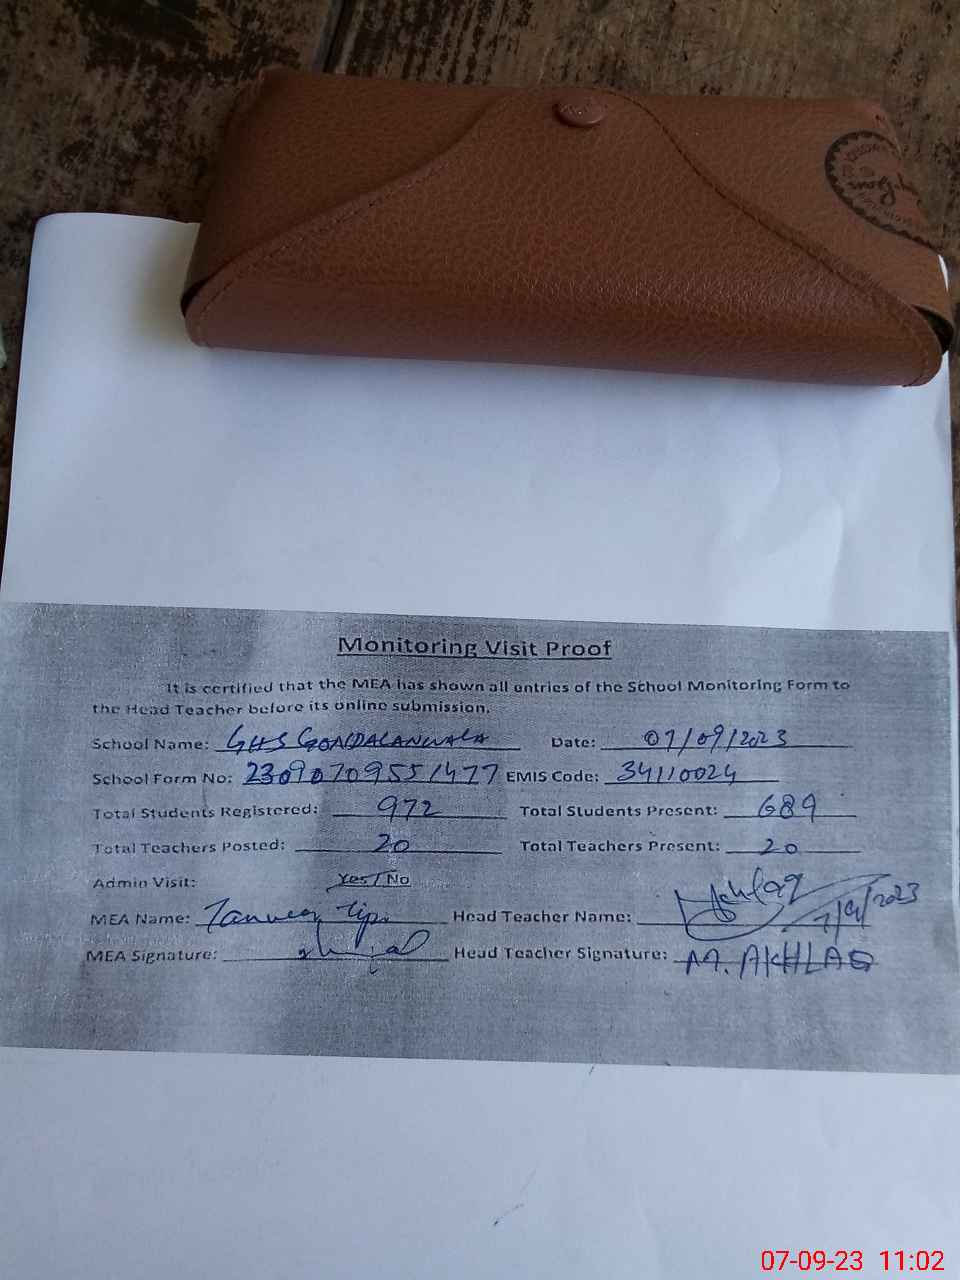 Monitoring Visit Proof
It is certified that the MEA has shown all entries of the School Monitoring Form to
the Head Teacher before its online submission.
School Name: GHS GONDALANWALA Date: 07/09/2023
School Form No: 23090709551477 EMIS Code: 34110024
Total Students Registered: 972 Total Students Present: 689
Total Teachers Posted: 20 Total Teachers Present: 20
Admin Visit: Yes / No
MEA Name: Tanveer Head Teacher Name: Akhlaq 7/9/2023
MEA Signature: Head Teacher Signature: M. AKHLAQ
07-09-23 11:02